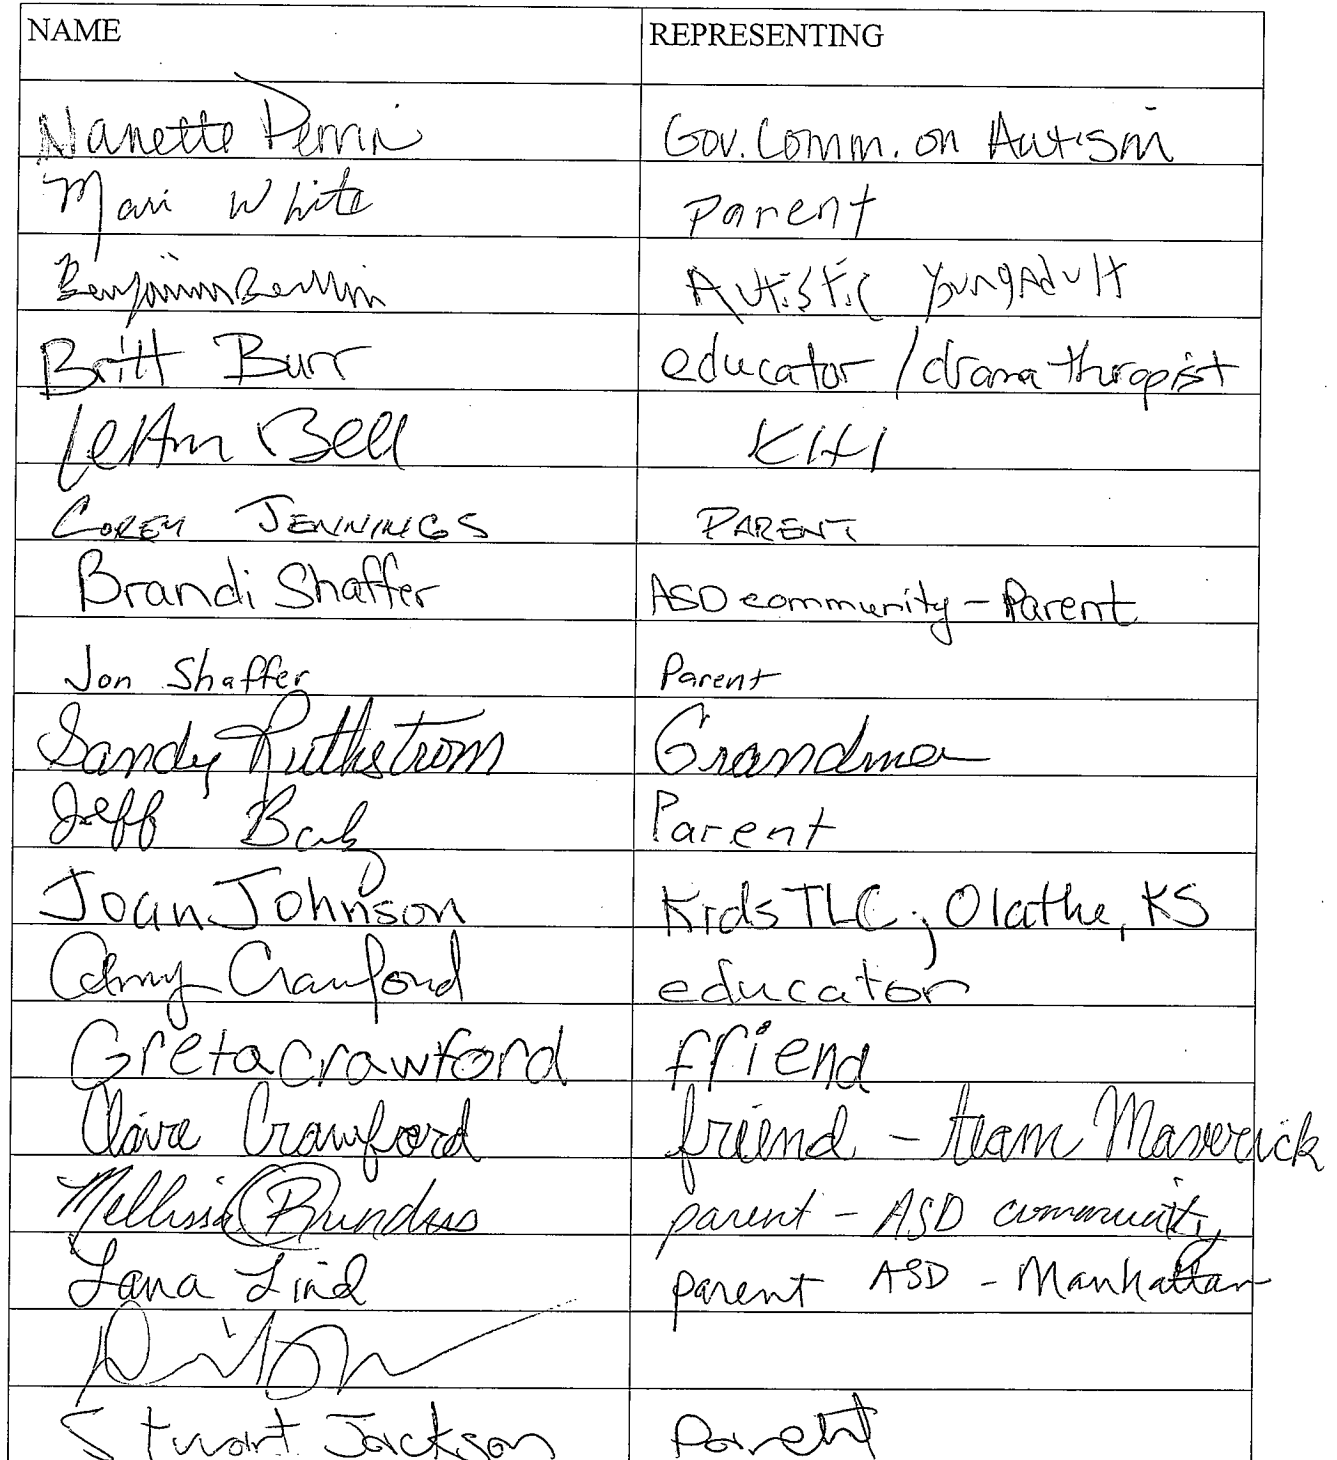 NAME REPRESENTING
Nanette Perrin Gov. Comm. on Autism
Mari White Parent
Benjamin Autistic YoungAdult
Britt Burr educator / drama thrapist
LeAnn Bell
COREY JENNINGS PARENT
Brandi Shaffer ASD community - Parent
Jon Shaffer Parent
Sandy Ruthstrom Grandma
Jeff Parent
Joan Johnson Kids TLC; Olathe, KS
Amy Crawford educator
Greta Crawford friend
Claire Crawford friend - team Maverick
Mellissa Rundus parent - ASD community
Lana Lind parent ASD - Manhattan
Stuart Jackson Parent